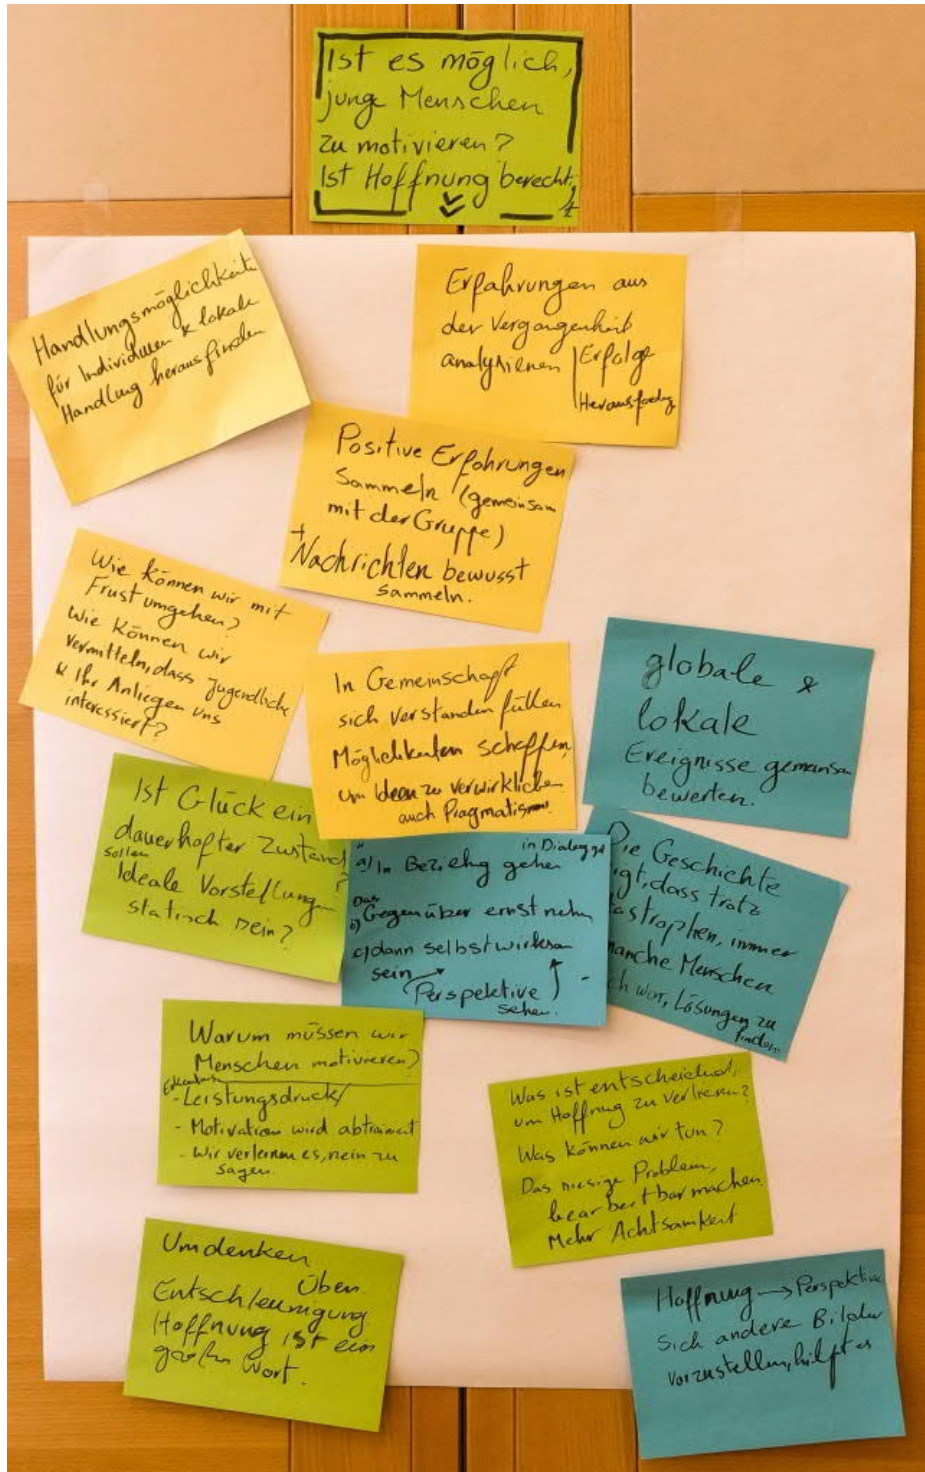 Ist es möglich,
junge Menschen
zu motivieren?
Ist Hoffnung berechtigt
Handlungsmöglichkeiten
für Individuen & lokale
Handlung herausfinden
Erfahrungen aus
der Vergangenheit
analysieren | Erfolge
Positive Erfahrungen
Sammeln (gemeinsam
mit der Gruppe)
+
Nachrichten bewusst
sammeln.
Wie können wir mit
Frust umgehen?
Wie können wir
vermitteln, dass Jugendliche
& Ihr Anliegen uns
interessiert?
In Gemeinschaft
sich verstanden fühlen
Möglichkeiten schaffen,
um Ideen zu verwirklichen
auch Pragmatismus
globale &
lokale
Ereignisse gemeinsam
bewerten.
Ist Glück ein
dauerhafter Zustand
?
sollen
Ideale Vorstellungen
statisch sein?
in Dialog
a) In Beziehg gehen
Das
b) Gegenüber ernst nehmen
c) dann selbstwirksam
sein
Perspektive
sehen.
Die Geschichte
igt, dass trotz
tastrophen, immer
manche Menschen
ch war, Lösungen zu
finden
Warum müssen wir
Menschen motivieren?
- Leistungsdruck
- Motivation wird abtrainiert
- Wir verlernen es, nein zu
sagen.
Was ist entscheidend,
um Hoffnung zu verlieren?
Was können wir tun?
Das riesige Problem,
bearbeitbar machen
Mehr Achtsamkeit
Umdenken
Üben
Entschleunigung
Hoffnung ist ein
großes Wort.
Hoffnung → Perspektive
Sich andere Bilder
vorzustellen, hilft es